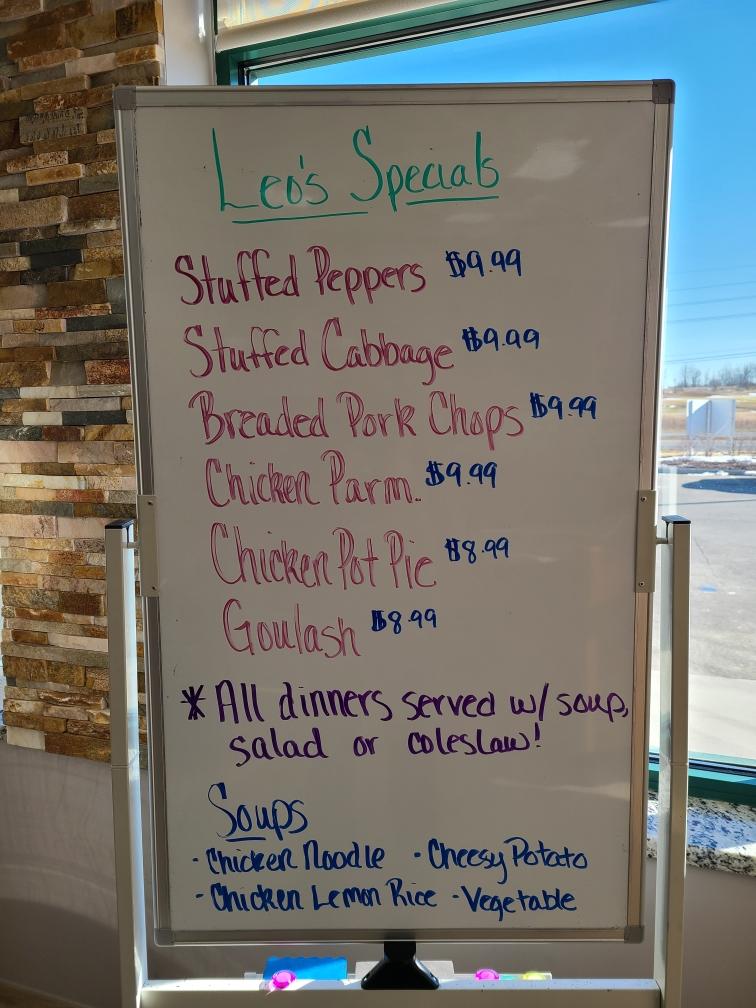 Leo's Specials
Stuffed Peppers $9.99
Stuffed Cabbage $9.99
Breaded Pork Chops $9.99
Chicken Parm. $9.99
Chicken Pot Pie $8.99
Goulash $8.99
* All dinners served w/ soup,
salad or coleslaw!
Soups
· Chicken Noodle · Cheesy Potato
· Chicken Lemon Rice · Vegetable